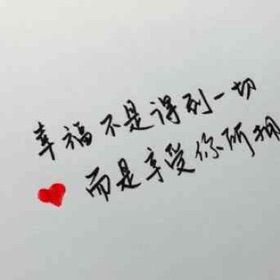 幸福不是得到一切
而是享受你所拥